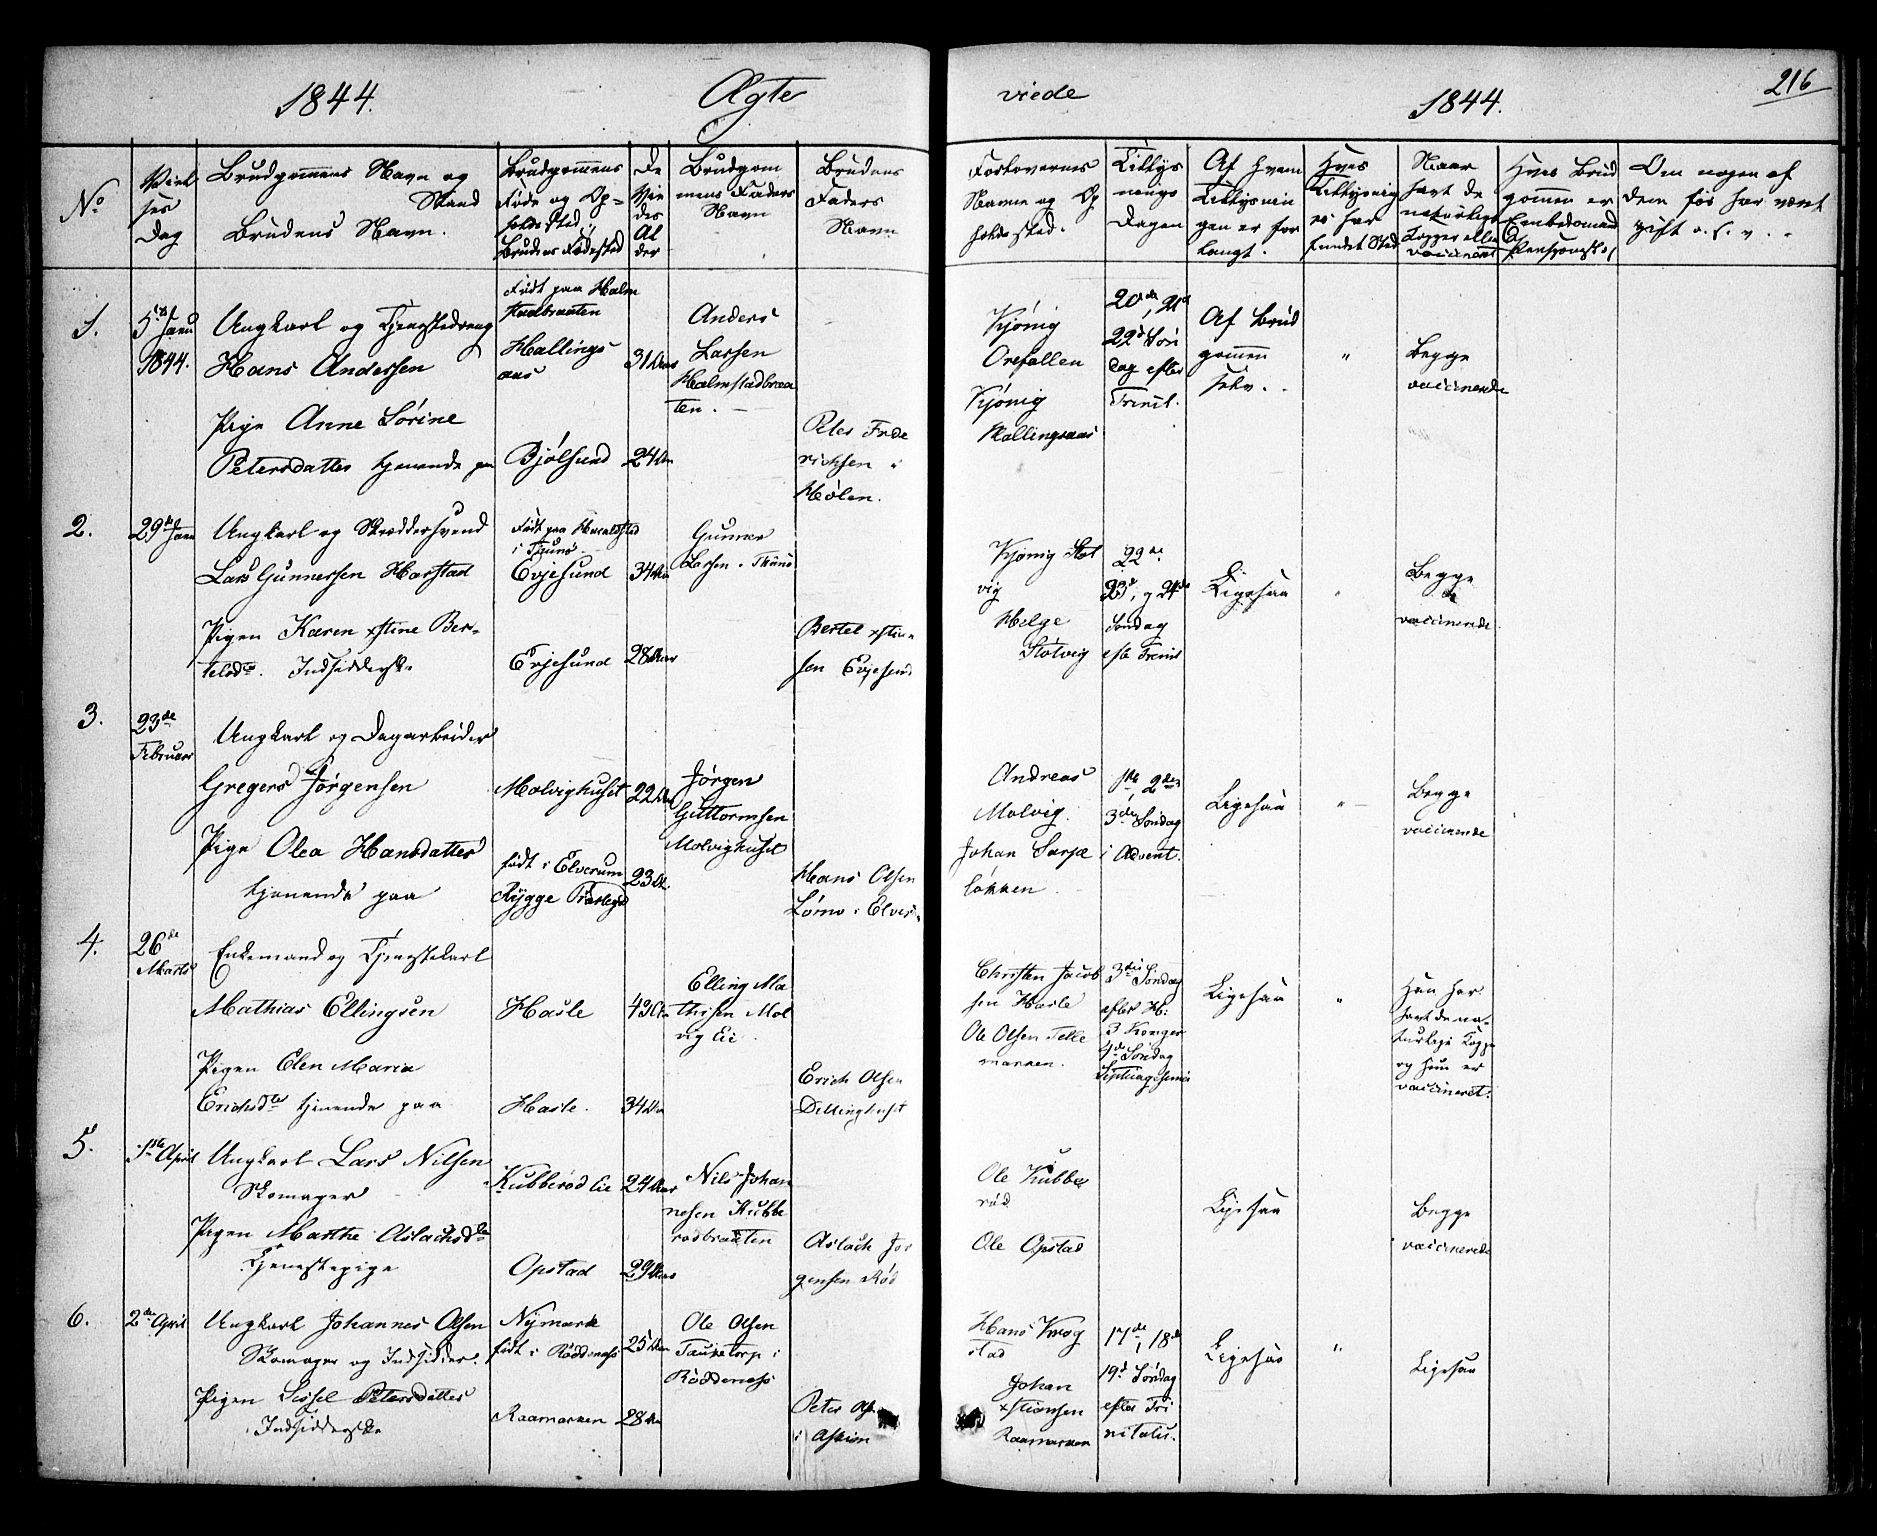 1844.
Ægte
viede
1844.
216
No
Viel
ses
Dag
Brudgommens Navn og
Stand
Brudens Navn.
Brudgommens
Føde og Op=
holdssted.
Brudens Fødested
De
Vie
des
Al
der
Brudgom
mens Faders
Navn
Brudens
Faders
Navn
Forlovernes
Navne og Op
holdssted.
Tillys
nings
Dagen
Af hvem
Tillysnin
gen er for
langt.
Hvis
Tillysning
ei har
fundet Sted
Naar
havt de
naturlige
Kopper eller
vaccineret
Hvis Brud
gommen er
Embedsmand
Om nogen af
dem før har været
gift o. s. v.
1.
5te Janu
1844.
Ungkarl og Tjenestedreng
Hans Andersen
Pige Anne Sørine
Petersdatter tjenende paa
Født paa Halm
stadbraaten
Hallings
aas
Bjølsund
31 Aar
24 Aar
Anders
Larsen
Halmstadbraa
ten.
Peter Frde
richsen i
Hølen.
Kjönig
Orefallen
Kjönig
Hallingsaas
20de, 21d
22d Søn
dag efter
Trinit.
Af Brud
gommen
selv.
"
Begge
vaccinerede
2.
29de Janu
Ungkarl og Skræddersvend
Lars Gunnersen Harstad
Pigen Karen xstine Ber=
telsdtr. Indsidderske
Født paa Haraldstad
i Thune
Evjesund
Evjesund
34 Aar
28 Aar
Gunner
Larsen i Thune
Bertel xstian
sen Evjesund
Kjönig Slot
vig
Helge
Slotvig
22de
23d, og 24de
Søndag
eft Trinit
Ligesaa
"
Begge
vaccinerede
3.
23de
Februar
Ungkarl og Dagarbeider
Gregers Jørgensen
Pige Olea Hansdatter
tjenende paa
Molvighuset
født i Elverum
Rygge Præstegd
22 Aar
23 Aar
Jørgen
Guttormsen
Molvighuset
Hans Olsen
Lømo i Elver
Andreas
Molvig.
Johan Sarpe
løkken
1ste, 2den
3die Søndag
i Advent.
Ligesaa
"
Begge
vaccinerede
4.
26de
Marts
Enkemand og Tjenestekarl
Mathias Ellingsen
Pigen Elen Maria
Erichsdtr tjenende paa
Hasle
Hasle.
49 Aar
34 Aar
Elling Ma
thisen Mol
vig Eie
Erich Olsen
Dillinghuset
Christen Jacob
sen Hasle
Ole Olsen Telle
marken.
3die Søndag
efter H:
3 Konger
4de Søndag
Septuagesima
Ligesaa
"
Han har
havt de na=
turlige Kopper
og hun er
vaccineret.
5.
1ste April
Ungkarl Lars Nilsen
Skomager
Pigen Marthe Aslachsdtr
Tjenestepige
Kubberød Eie
Opstad
24 Aar
29 Aar
Nils Johan
nesen Kubbe
rødbraaten
Aslach Jør
gensen Rød
Ole Kubbe
rød
Ole Opstad
Ligesaa
Begge
vaccinerede
6.
2den April
Ungkarl Johannes Olsen
Skomager og Indsidder.
Pigen Sissel Petersdatter
Indsidderske
Nymark
født i Røddenæss
Raamarken
25 Aar
28 Aar
Ole Olsen
Tauketorp i
Røddenæss
Peter Ols
i Askim
Hans Krog
stad
Johan
xstiansen
Raamarken
17de, 18de
19d Søndag
efter Tri
nitatis.
Ligesaa
"
Ligesaa